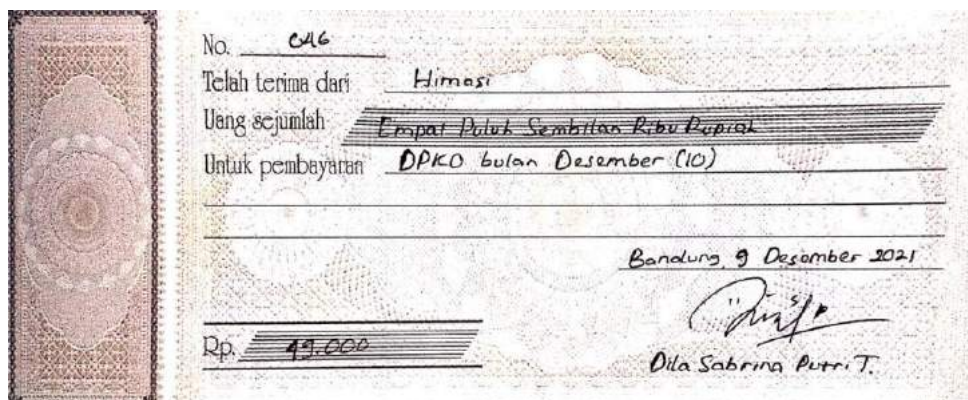 No. 046
Telah terima dari Himasi
Uang sejumlah Empat Puluh Sembilan Ribu Rupiah
Untuk pembayaran DPKO bulan Desember (10)
Bandung, 9 Desember 2021
Rp. 49.000
Dila Sabrina Putri T.